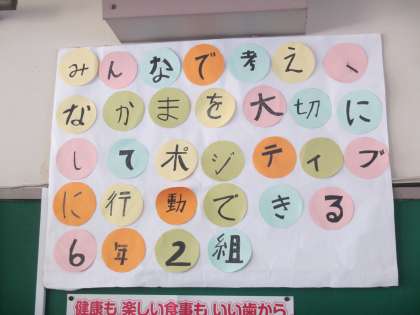 みんなで考え、
なかまを大切に
してポジティブ
に行動できる
6年2組
健康も 楽しい食事も いい歯から